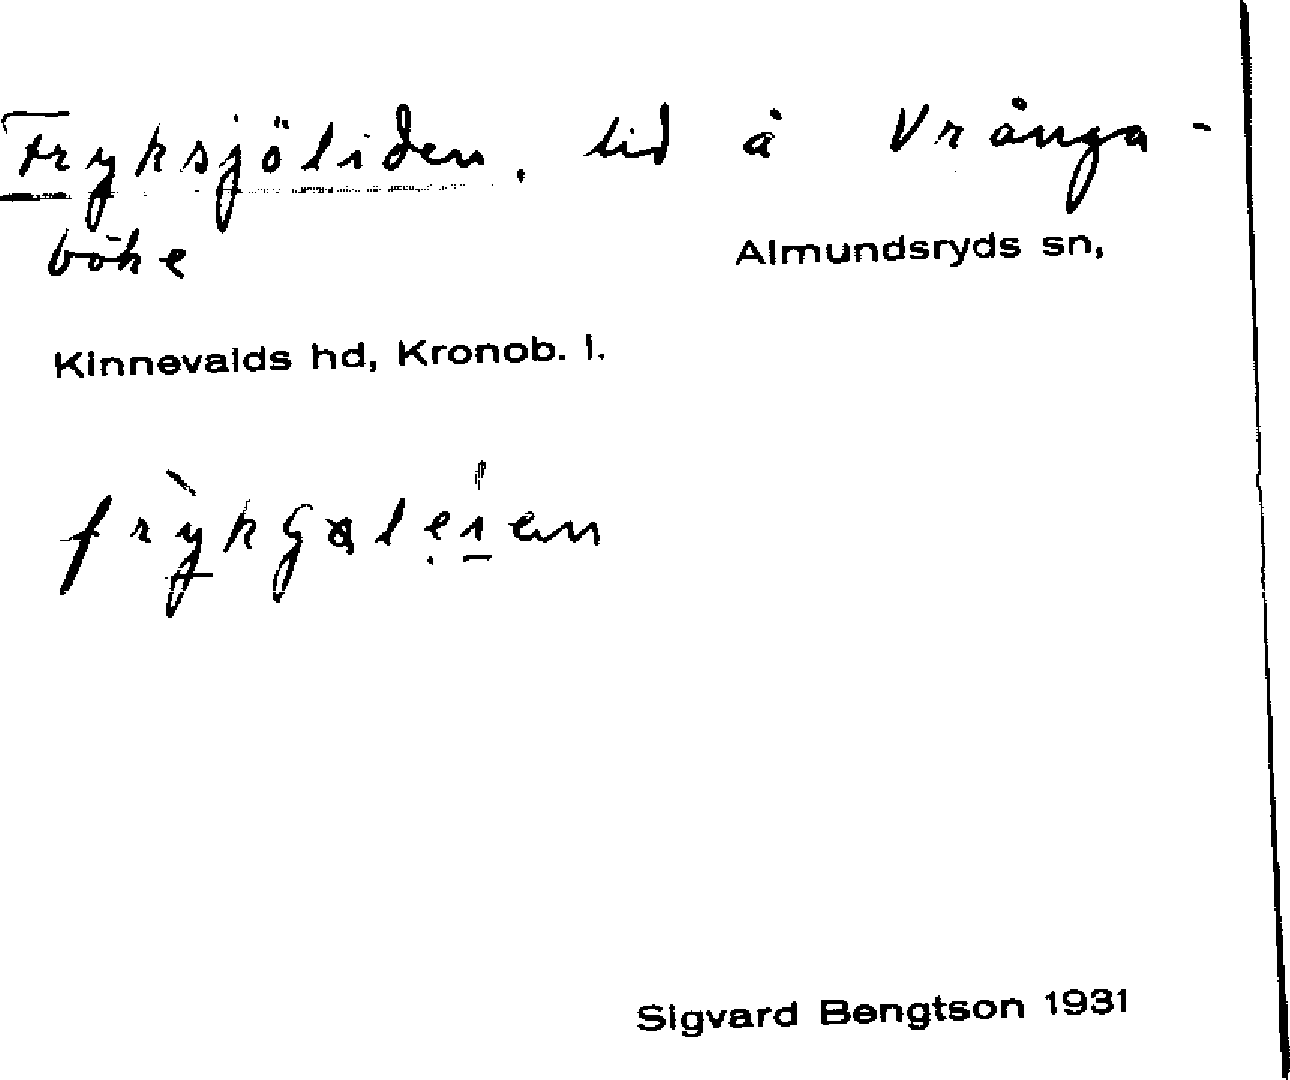 Fryksjöliden, lid å Vrånga-
böke
Almundsryds sn,
Kinnevalds hd, Kronob. l.
Sigvard Bengtson 1931